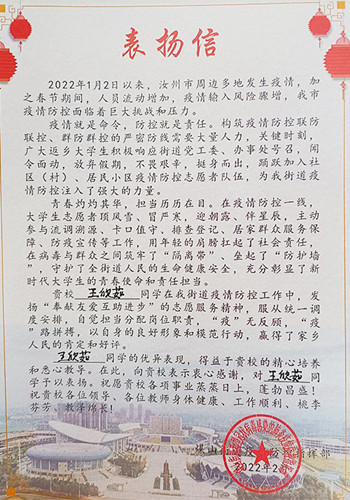 表扬信
2022年1月2日以来，汝州市周边多地发生疫情，加
之春节期间，人员流动增加，疫情输入风险骤增，我市
疫情防控面临着巨大挑战和压力。
疫情就是命令，防控就是责任。构筑疫情防控联防
联控、群防群控的严密防线需要大量人力，关键时刻，
广大返乡大学生积极响应街道党工委、办事处号召，闻
令而动，放弃假期，不畏艰辛，挺身而出，踊跃加入社
区（村）、居民小区疫情防控志愿者队伍，为我街道疫
情防控注入了强大的力量。
青春灼灼其华，担当历历在目。在疫情防控一线，
大学生志愿者顶风雪、冒严寒，迎朝露、伴星辰，主动
参与流调溯源、卡口值守、排查登记、居家群众服务保
障、防疫宣传等工作，用年轻的肩膀扛起了社会责任，
在病毒与群众之间筑牢了“隔离带”、垒起了“防护墙
”，守护了全街道人民的生命健康安全，充分彰显了新
时代大学生的青春使命和责任担当。
贵校 王欣茹 同学在我街道疫情防控工作中，发
扬“奉献友爱互助进步”的志愿服务精神，服从统一调
度安排，自觉担当分配岗位职责，“疫”无反顾，“疫
”路拼搏，以自身的良好形象和模范行动，赢得了家乡
人民的肯定和好评。
王欣茹 同学的优异表现，得益于贵校的精心培养
和悉心教导。在此，向贵校表示衷心感谢，对 王欣茹 同
学予以表扬。祝愿贵校各项事业蒸蒸日上，蓬勃昌盛！
祝贵校各位领导、各位教师身体健康、工作顺利、桃李
芬芳、教泽绵长！
2022年2